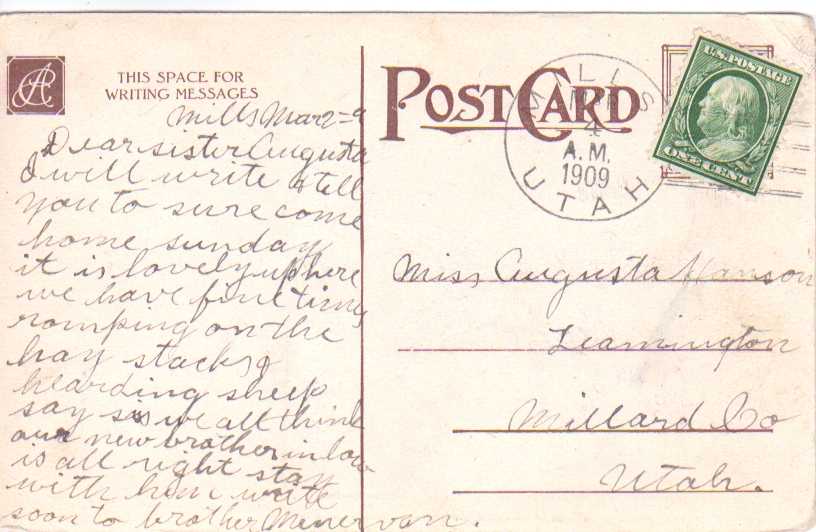 THIS SPACE FOR
WRITING MESSAGES
Mills Mar 2=9
Dear sister Augusta
I will write & tell
you to sure come
home sunday
it is lovely up here
we have fine times
romping on the
hay stacks &
hearding sheep
say sis we all think
our new brother in law
is all right stay
with him write
soon to brother Minervan.
POST CARD
MILLS
MAR
4
A.M.
1909
UTAH
U.S. POSTAGE
ONE CENT
Miss Augusta Hanson
Leamington
Millard Co
Utah.